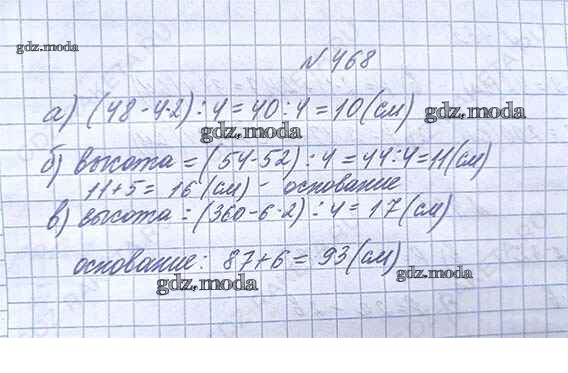 gdz.moda
№468
а) (48-4·2):4=40:4=10(см) gdz.moda
gdz.moda
б) высота=(54-52):4=44:4=11(см)
11+5=16(см) - основание
в) высота:(360-6·2):4=17(см)
gdz.moda
основание: 87+6=93(см)
gdz.moda
gdz.moda